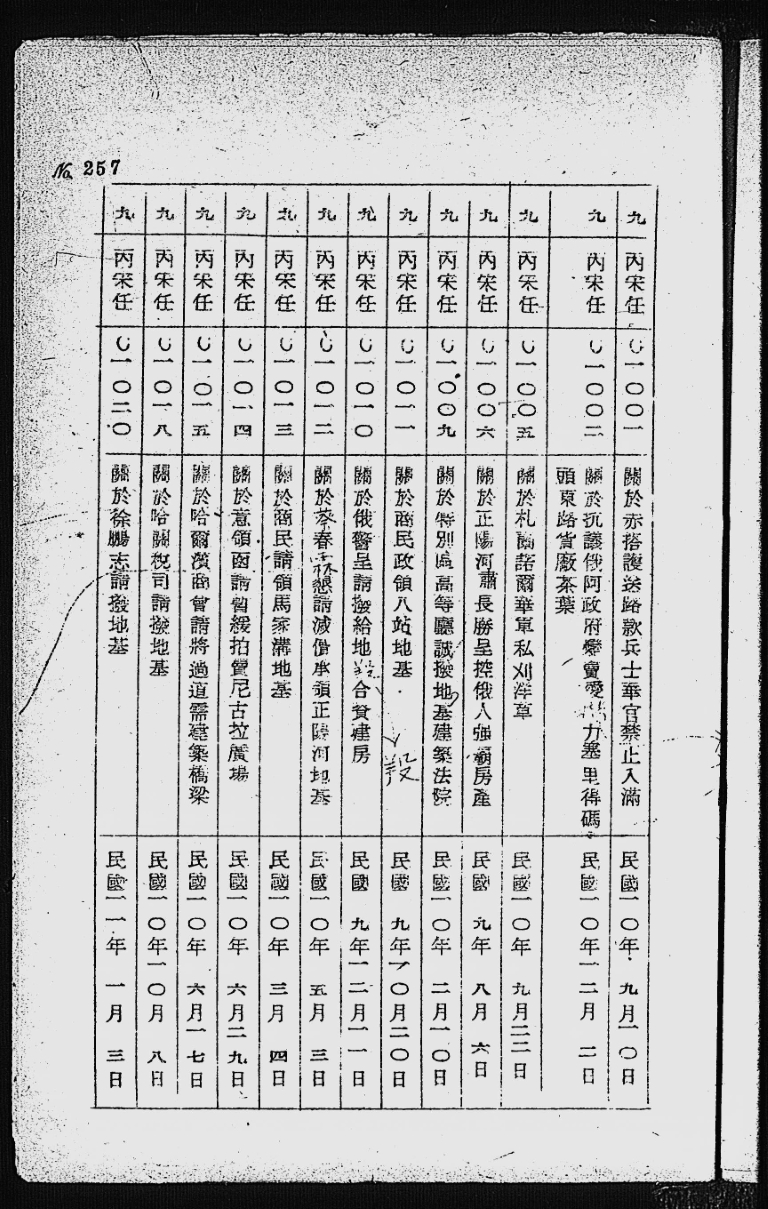 No. 257
九 丙宋任 〇一〇〇一 關於赤塔護送路款兵士華官禁止入滿 民國一〇年 九月一〇日
九 丙宋任 〇一〇〇二 關於抗議俄阿政府變賣愛 力塞里得碼
頭東路貨廠茶葉 民國一〇年一二月 二日
九 丙宋任 〇一〇〇五 關於札蘭諾爾華軍私刈洋草 民國一〇年 九月二二日
九 丙宋任 〇一〇〇六 關於正陽河蕭長勝呈控俄人强霸房產 民國 九年 八月 六日
九 丙宋任 〇一〇〇九 關於特別區高等廳誠撥地基建築法院 民國一〇年 二月一〇日
九 丙宋任 〇一〇一一 關於商民政領八站地基 民國 九年一〇月二〇日
九 丙宋任 〇一〇一〇 關於俄醫呈請撥給地 合資建房 民國 九年一二月一一日
九 丙宋任 〇一〇一二 關於蔡春霖懇請減價承領正陽河地基 民國一〇年 五月 三日
九 丙宋任 〇一〇一三 關於商民請領馬家溝地基 民國一〇年 三月 四日
九 丙宋任 〇一〇一四 關於意領函請暫緩拍賣尼古拉廣場 民國一〇年 六月二九日
九 丙宋任 〇一〇一五 關於哈爾濱商會請將過道需建築橋梁 民國一〇年 六月一七日
九 丙宋任 〇一〇一八 關於哈關稅司請撥地基 民國一〇年一〇月 八日
九 丙宋任 〇一〇二〇 關於徐鵬志請撥地基 民國一一年 一月 三日